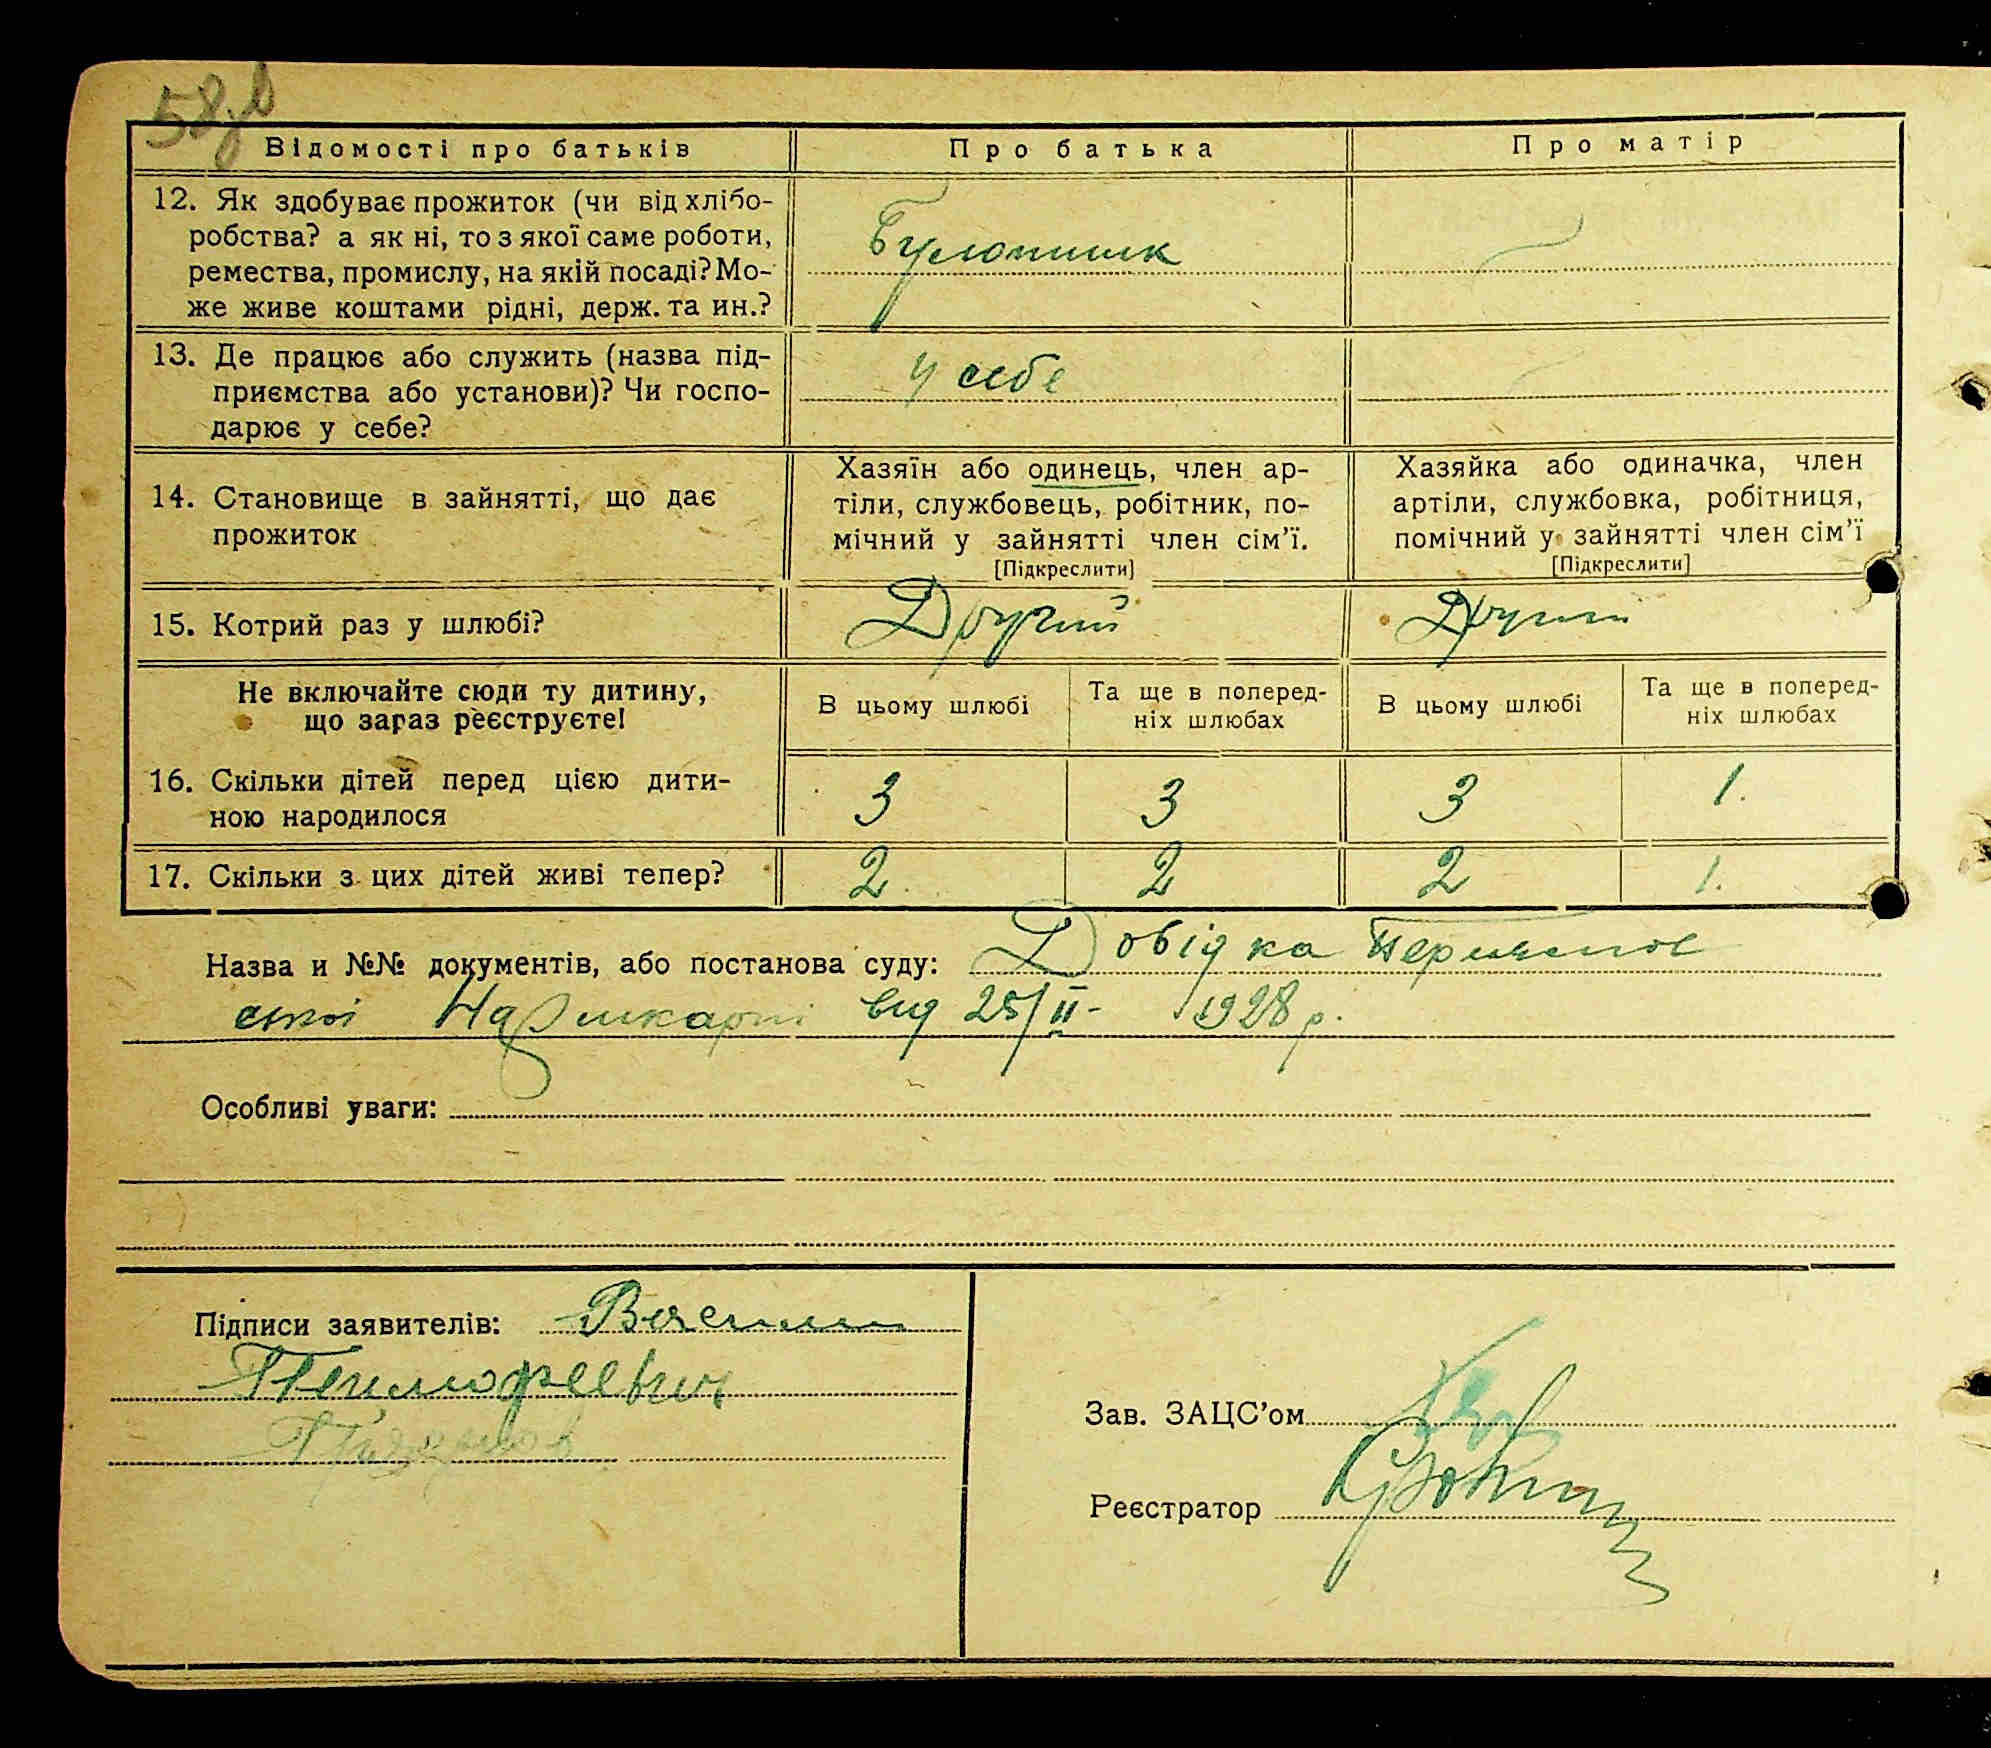 58зв
Відомості про батьків
Про батька
Про матір
12. Як здобуває прожиток (чи від хлібо-
робства? а як ні, то з якої саме роботи,
ремества, промислу, на якій посаді? Мо-
же живе коштами рідні, держ. та ин.?
13. Де працює або служить (назва під-
приємства або установи)? Чи госпо-
дарює у себе?
у себе
14. Становище в зайнятті, що дає
прожиток
Хазяїн або одинець, член ар-
тіли, службовець, робітник, по-
мічний у зайнятті член сім'ї.
[Підкреслити]
Хазяйка або одиначка, член
артіли, службовка, робітниця,
помічний у зайнятті член сім'ї
[Підкреслити]
15. Котрий раз у шлюбі?
Другий
Другий
Не включайте сюди ту дитину,
що зараз реєструєте!
В цьому шлюбі
Та ще в поперед-
ніх шлюбах
В цьому шлюбі
Та ще в поперед-
ніх шлюбах
16. Скільки дітей перед цією дити-
ною народилося
3
3
3
1.
17. Скільки з цих дітей живі тепер?
2
2
2
1.
Назва и №№ документів, або постанова суду: Довідка
від 25/II- 1928 р.
Особливі уваги:
Підписи заявителів:
Тимофеевич
Зав. ЗАЦС'ом
Реєстратор